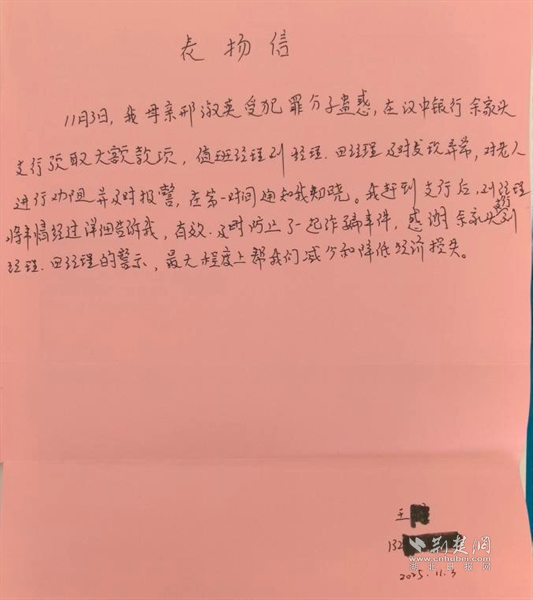 表扬信
11月3日，我母亲邢淑英受犯罪分子蛊惑，在汉口银行余家头
支行预取大额款项，值班经理刘经理、田经理及时发现异常，对老人
进行劝阻并及时报警，在第一时间通知我知晓。我赶到支行后，刘经理
将事情经过详细告诉我，有效、及时防止了一起诈骗事件，感谢余家头支行刘
经理、田经理的警示，最大程度上帮我们减少和降低经济损失。
王
132
2025.11.3
荆楚网
www.cnhubei.com
湖北日报网